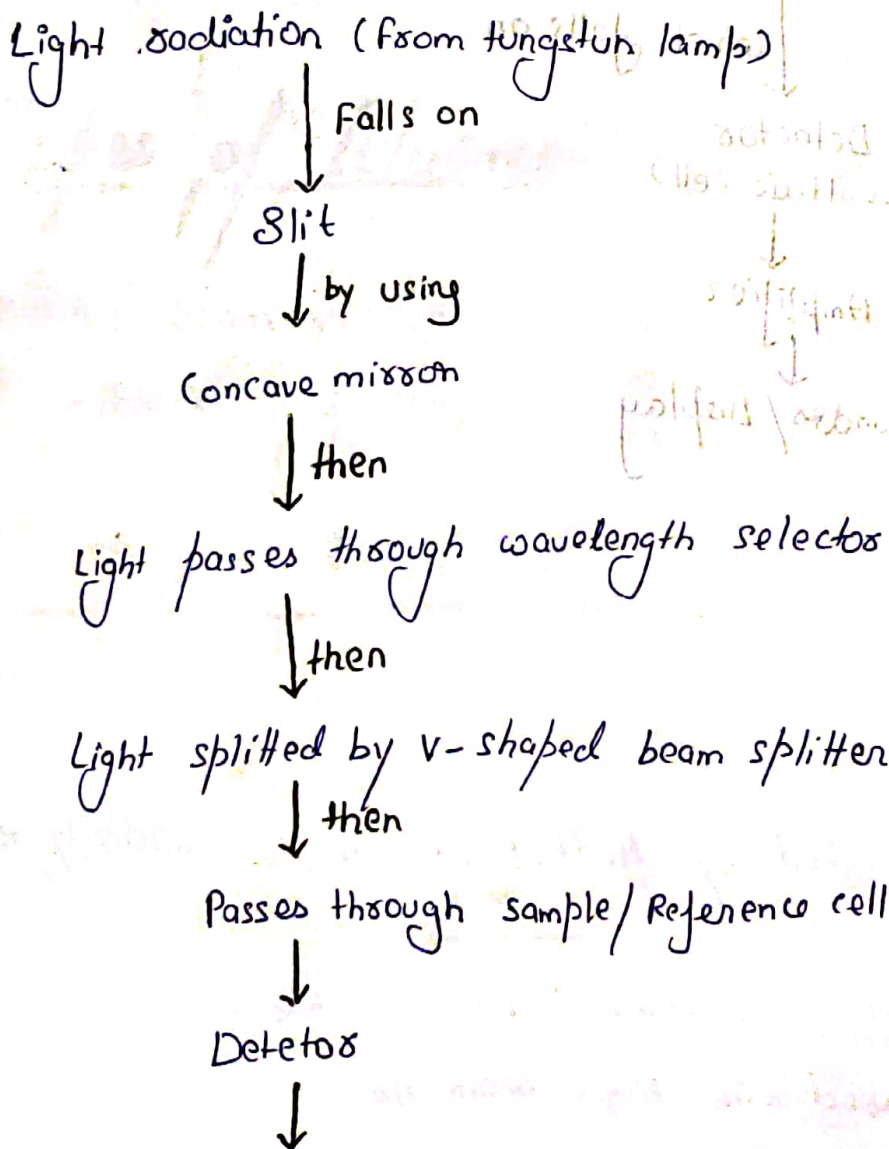 Light radiation (from tungstun lamp)
Falls on
Slit
by using
Concave mirror
then
Light passes through wavelength selector
then
Light splitted by V-shaped beam splitter
then
Passes through sample/Reference cell
Detetor